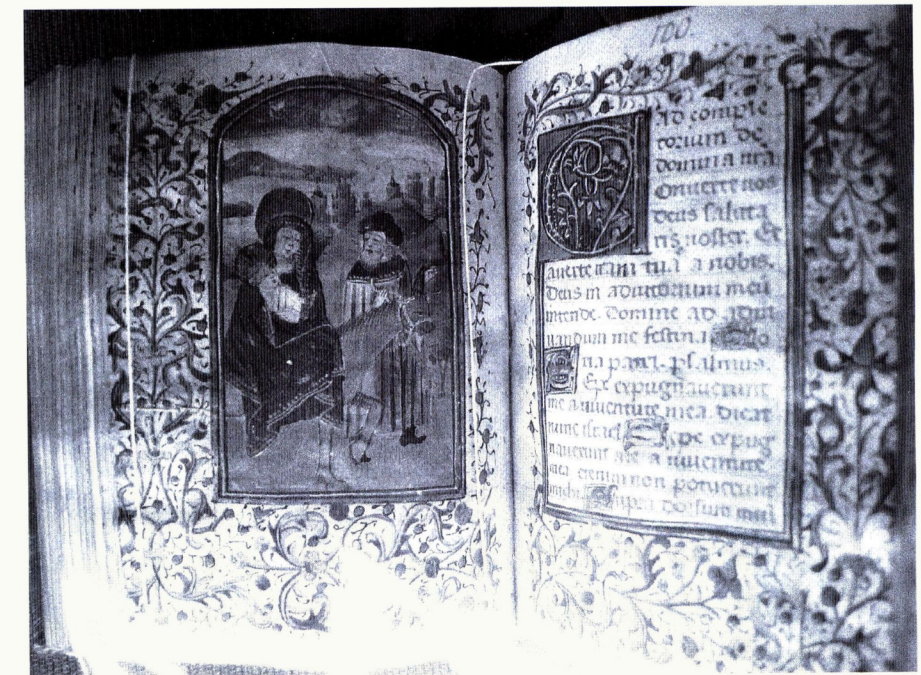 100.
Ad comple
torium de
domina nra
Onuerte nos
deus saluta
ris noster. Et
auerte iram tuā a nobis.
Deus in adiutorium meū
intende. Domine ad adiu
uandum me festina
psalmus.
Epe expugnauerunt
me a iuuentute mea. dicat
nunc israel Sepe expug
nauerunt me a iuuentute
mea etenim non potuerunt
michi. Supra dorsum meū